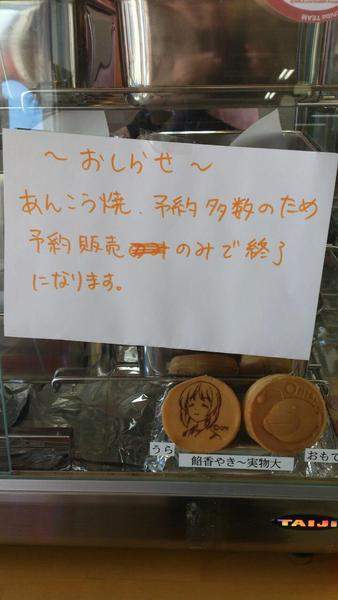 ～おしらせ～
あんこう焼、予約多数のため
予約販売のみで終了
になります。
うら
餡香やき～実物大
おもて
TAIJI